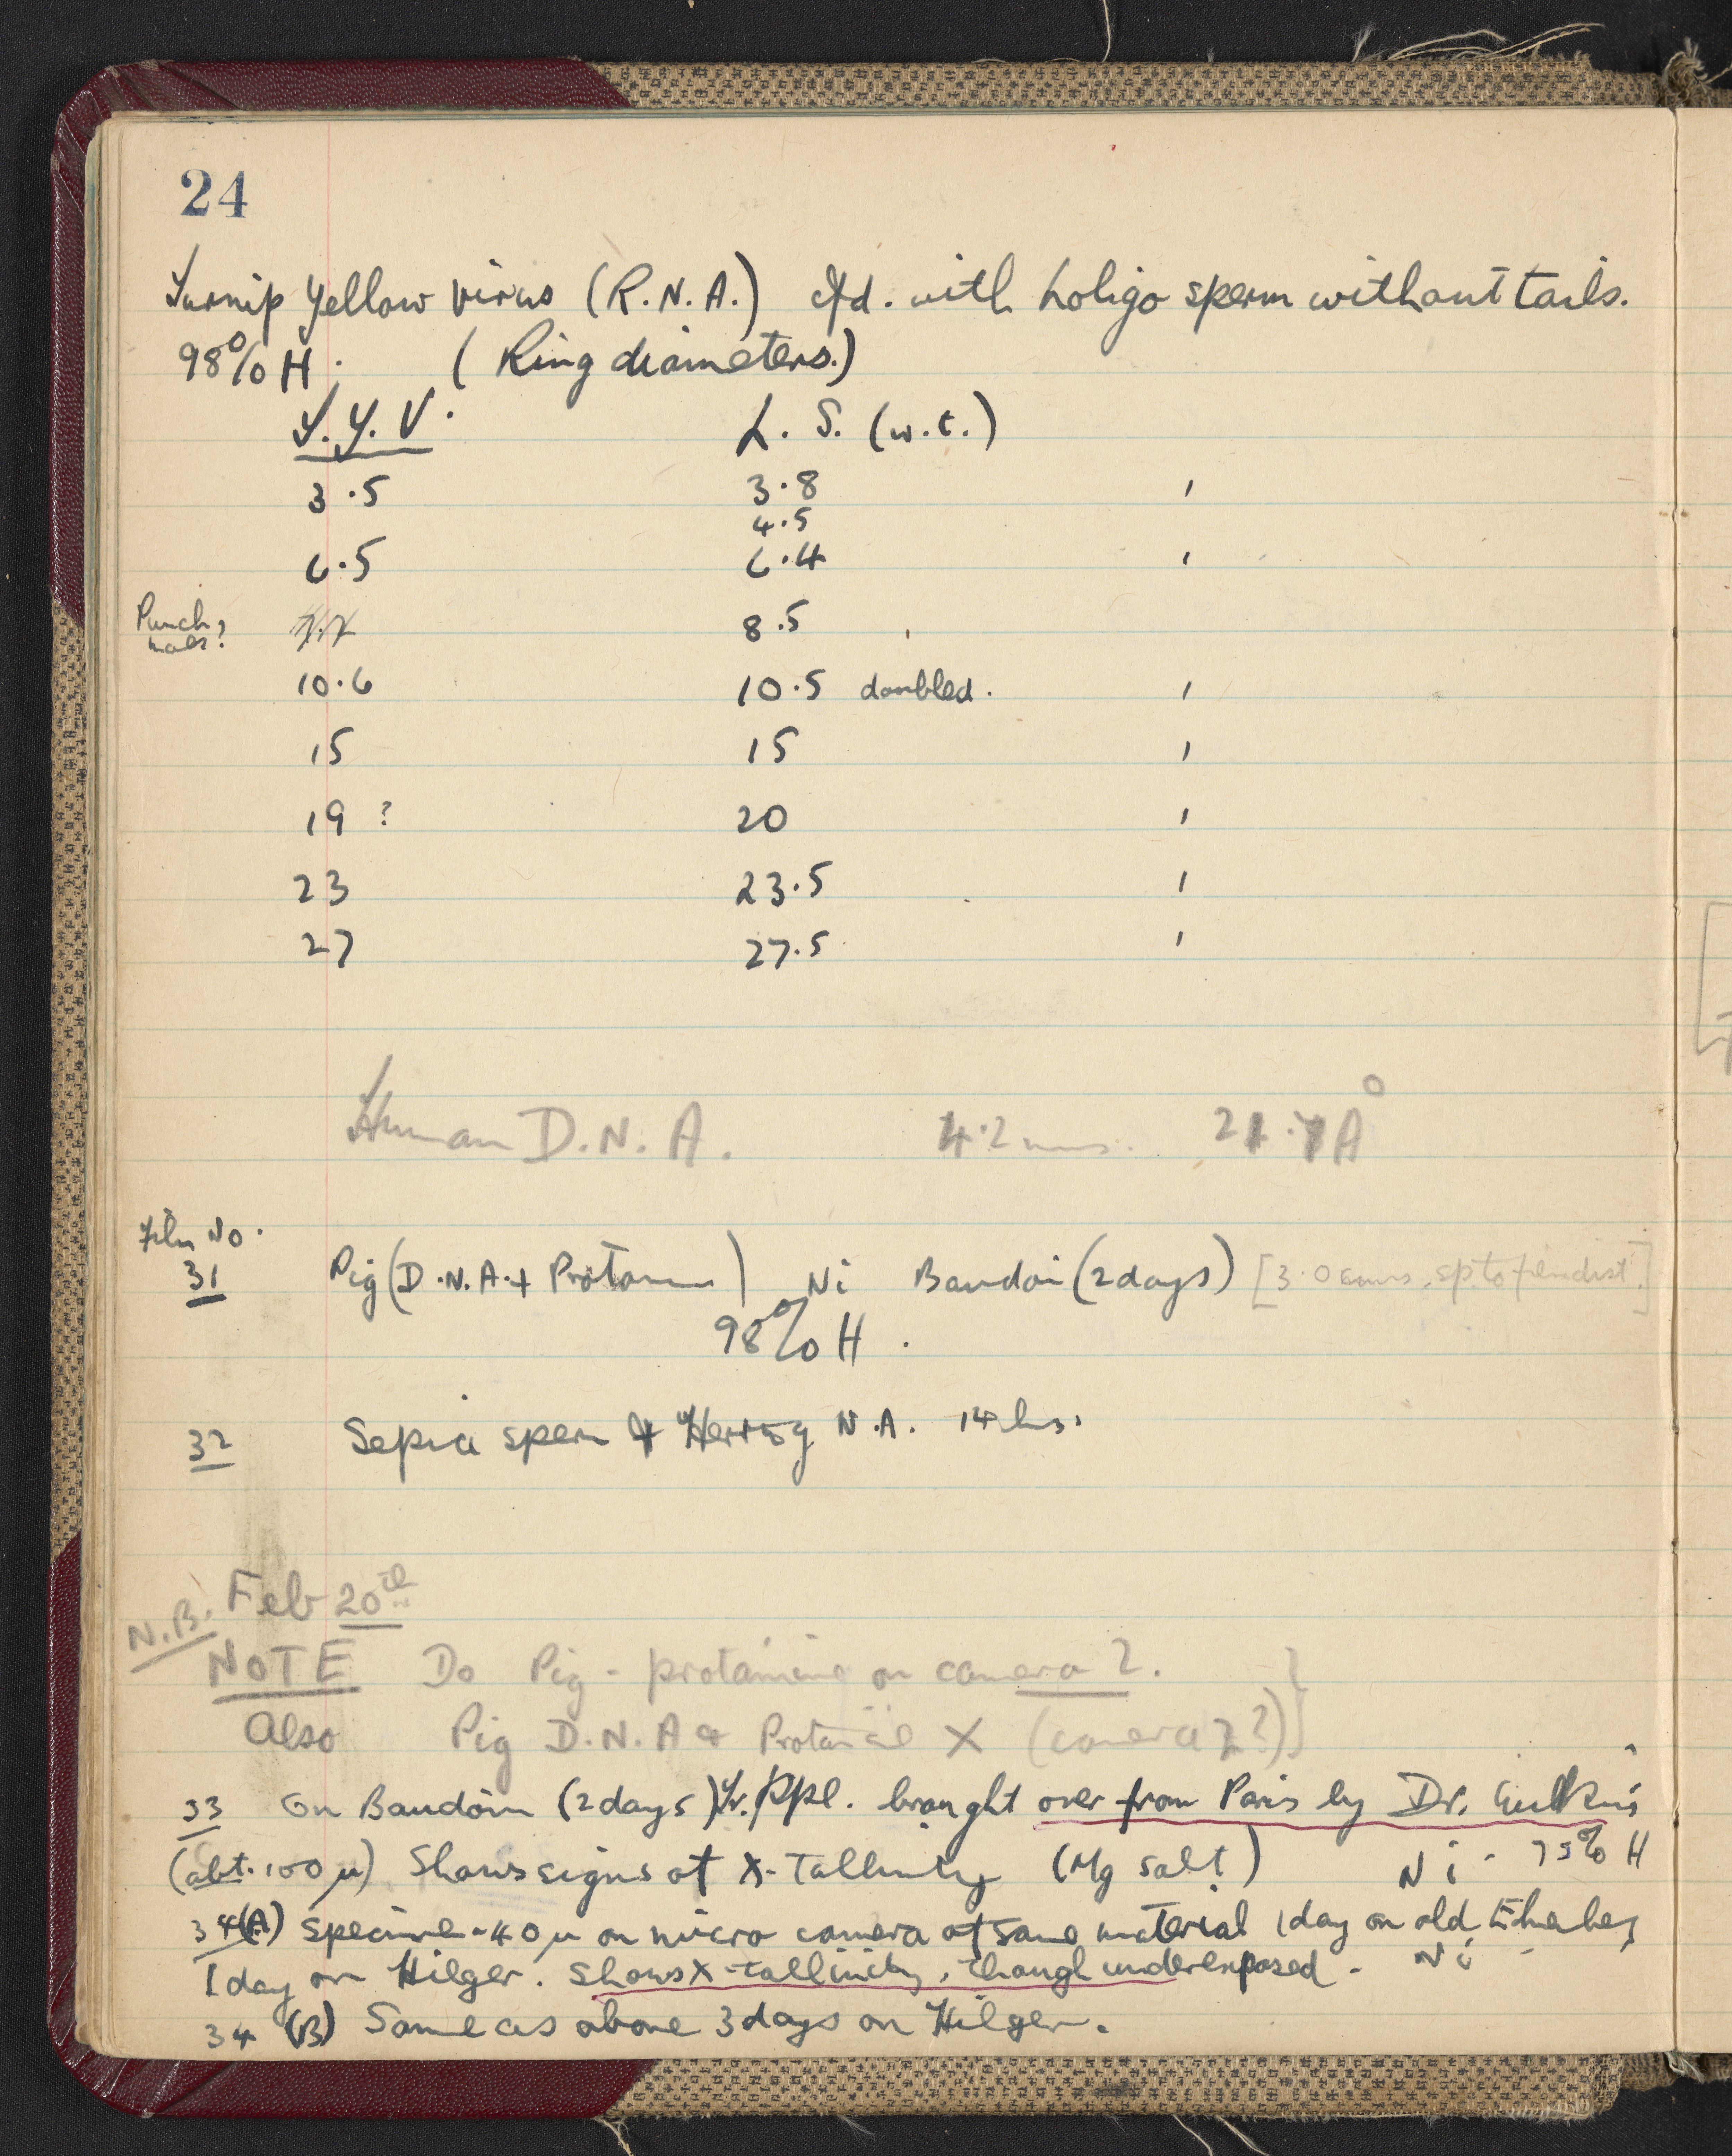 24
Turnip Yellow Virus (R.N.A.) cfd. with Loligo sperm without tails.
98% H. (Ring diameters.)
T.Y.V. L.S. (w.t.)
3.5 3.8
4.5
6.5 6.4
Punch
8.5
10.6 10.5 doubled.
15 15
19? 20
23 23.5
27 27.5
Human D.N.A. 4.2 mms.
Film No.
31 Pig (D.N.A. + Protamine) Ni Baudoin (2 days) [3.0 cms. sp. to film dist.]
98% H.
32 Sepia sperm + Herring N.A. 14 hrs.
Feb 20th
N.B.
NOTE Do Pig - protamine on camera 2.
Also Pig D.N.A & Protamine X (camera 2?)
33 On Baudoin (2 days) ppl. brought over from Paris by Dr.
(abt. 100 μ) Shows signs of X-tallinity (Mg salt) Ni - 75% H
34(A) Specimen 40 μ on micro camera of same material 1 day on old
1 day on Hilger. Shows X-tallinity, though underexposed. Ni
34 (B) Same as above 3 days on Hilger.